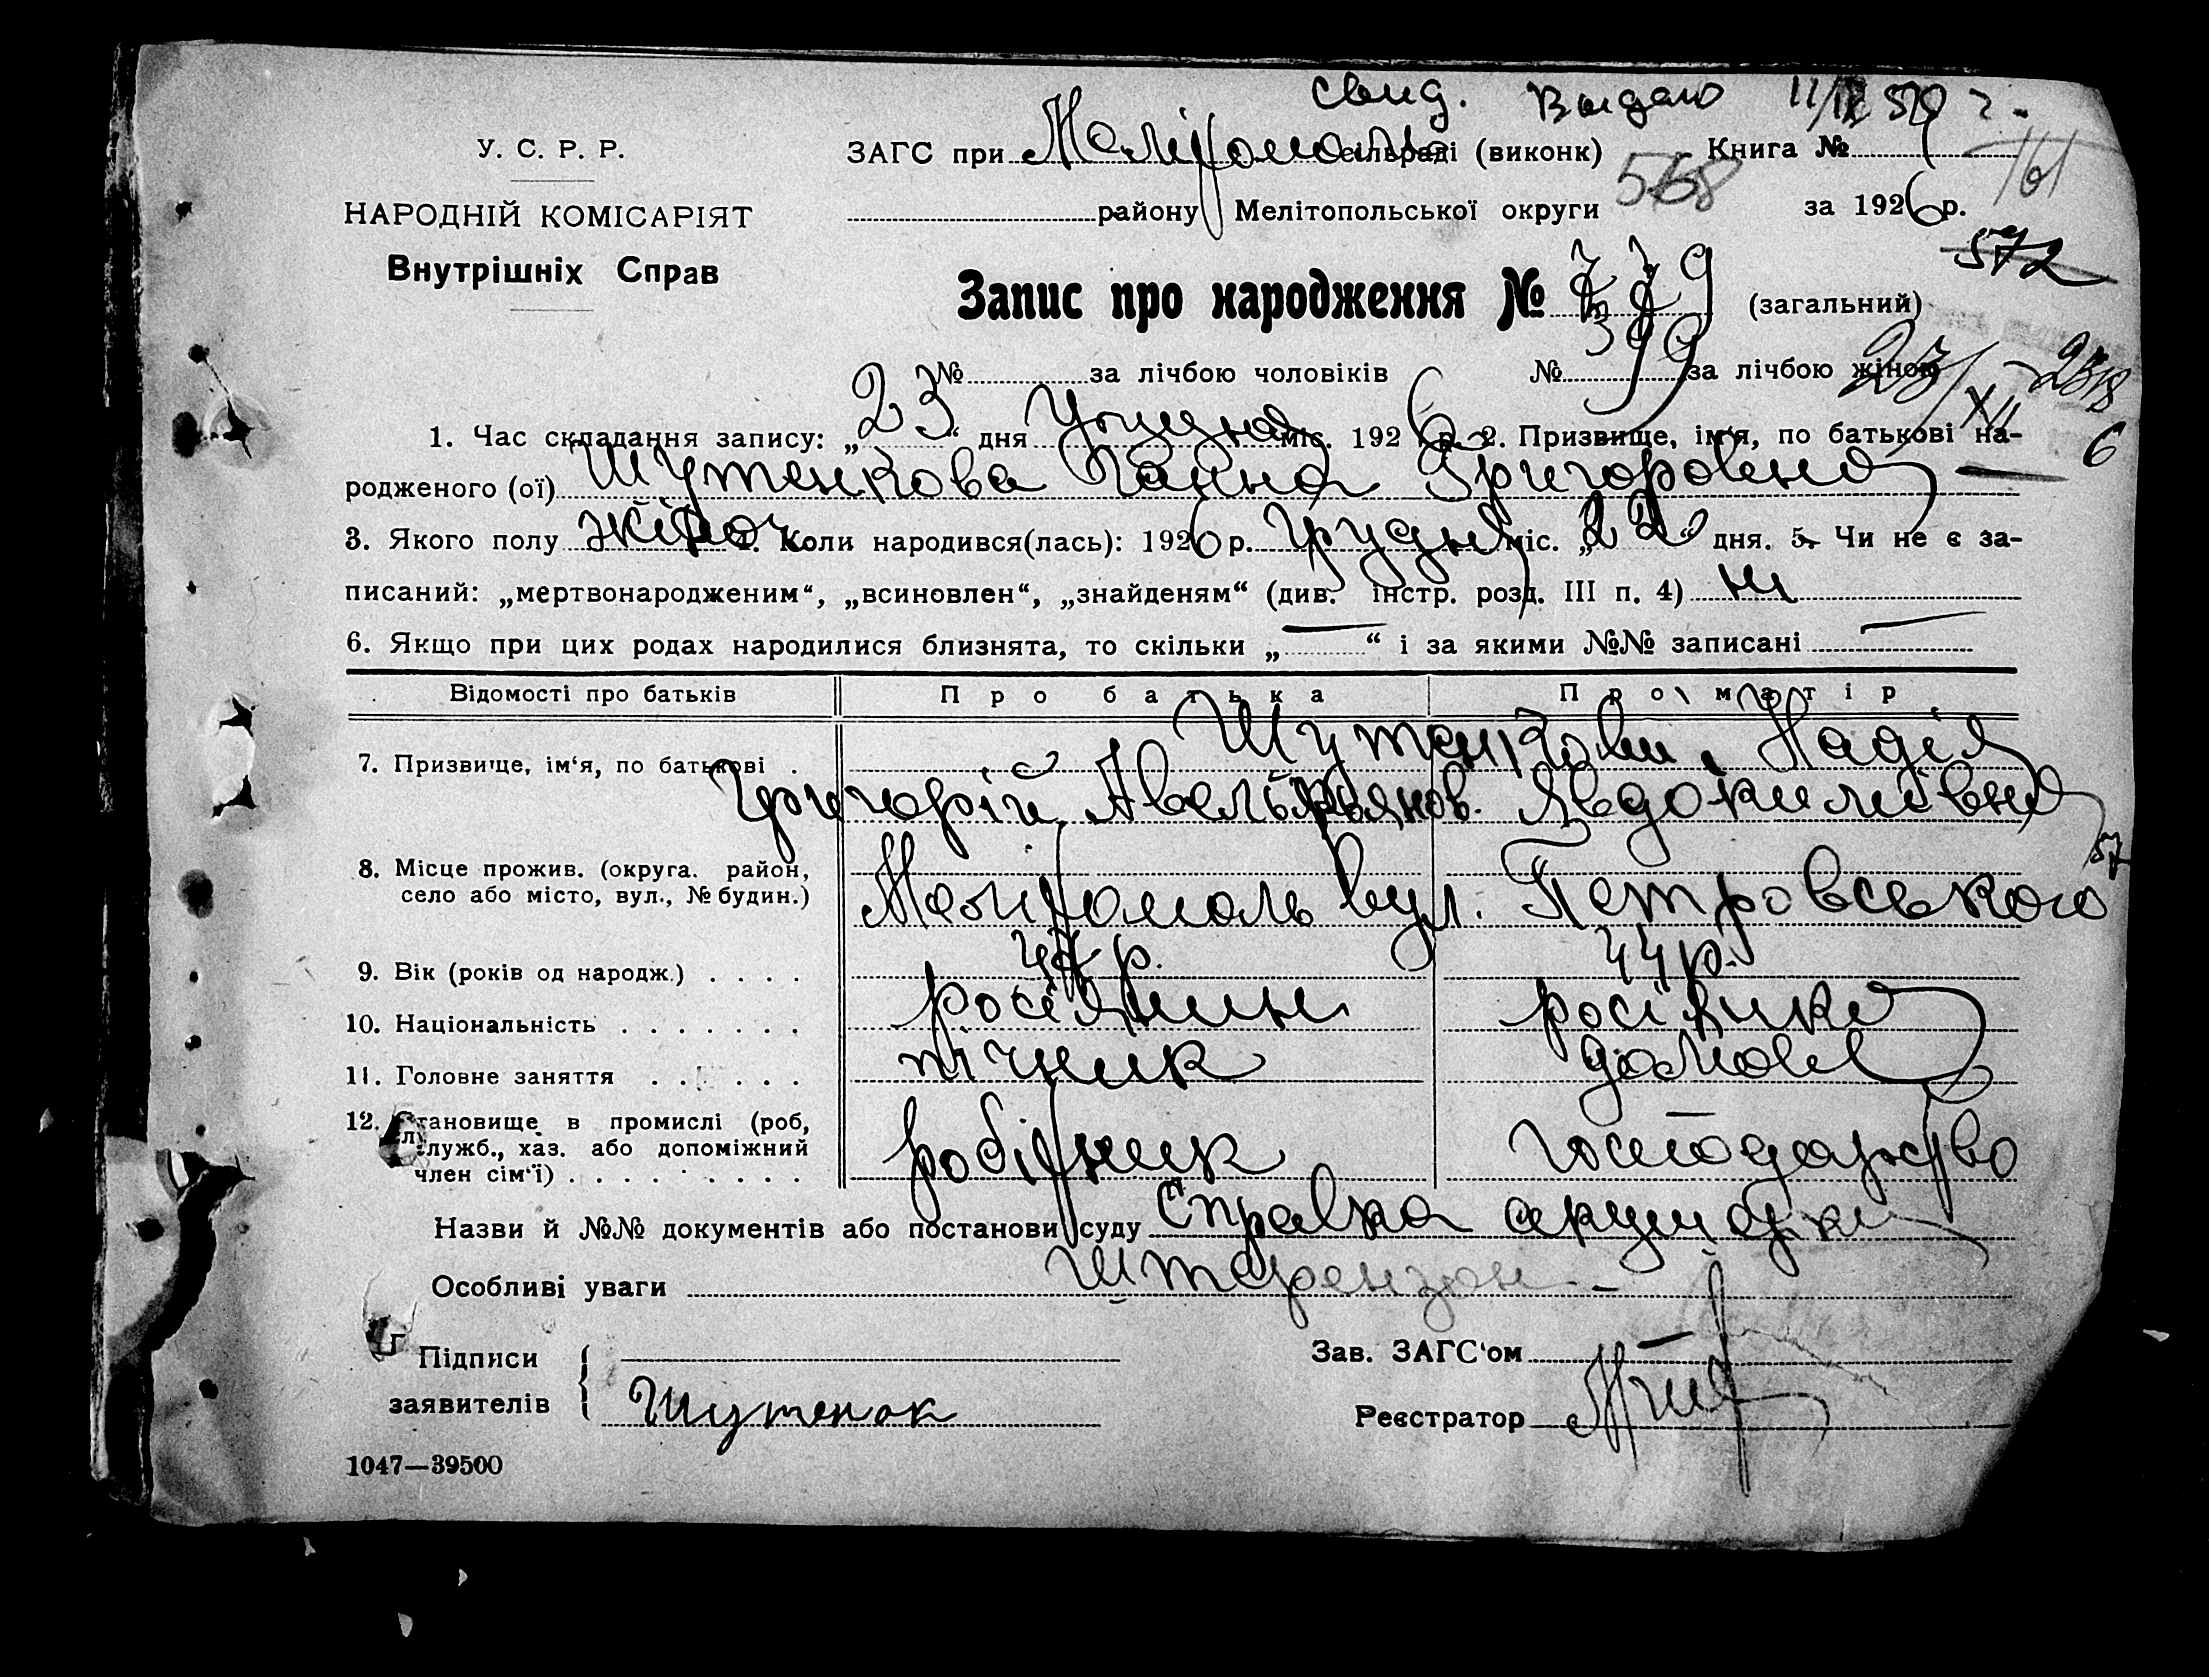 свид. Выдано 11/IX 59 г.
У. С. Р. Р.
ЗАГС при Мелітополь сільраді (виконк) Книга №
161
НАРОДНІЙ КОМІСАРІЯТ
района Мелітопольської округи 558 за 1926 р.
572
Внутрішніх Справ
Запис про народження № 779 (загальний)
№ за лічбою чоловіків № 399 за лічбою жінок
23/XII
1. Час складання запису: „23“ дня Грудня міс. 1926 р. 2. Призвище, ім'я, по батькові на-
6
родженого (ої) Шутенкова Ганна Григоровна
3. Якого полу жіноч. 4. Коли народився(лась): 1926 р. Грудня міс. „22“ дня. 5. Чи не є за-
писаний: „мертвонародженим“, „всиновлен“, „знайденям“ (див. інстр. розд. III п. 4) ні
6. Якщо при цих родах народилися близнята, то скільки „ “ і за якими №№ записані
Відомості про батьків Про батька Про матір
7. Призвище, ім‘я, по батькові Шутенкови, Надія
Григорій Авельянов. Явдокимівна
8. Місце прожив. (округа. район,
село або місто, вул., № будин.) Мелітополь вул. Петровського 57
9. Вік (років од народж.) 47 р. 44 р.
10. Національність росіянин росіянка
11. Головне заняття пічник домове
12. Становище в промислі (роб,
служб., хаз. або допоміжний робітник господарство
член сім‘ї)
Назви й №№ документів або постанови суду Справка акушорки
Особливі уваги Штеренгон
Підписи Зав. ЗАГС‘ом
заявителів Шутенок Реєстратор
1047—39500